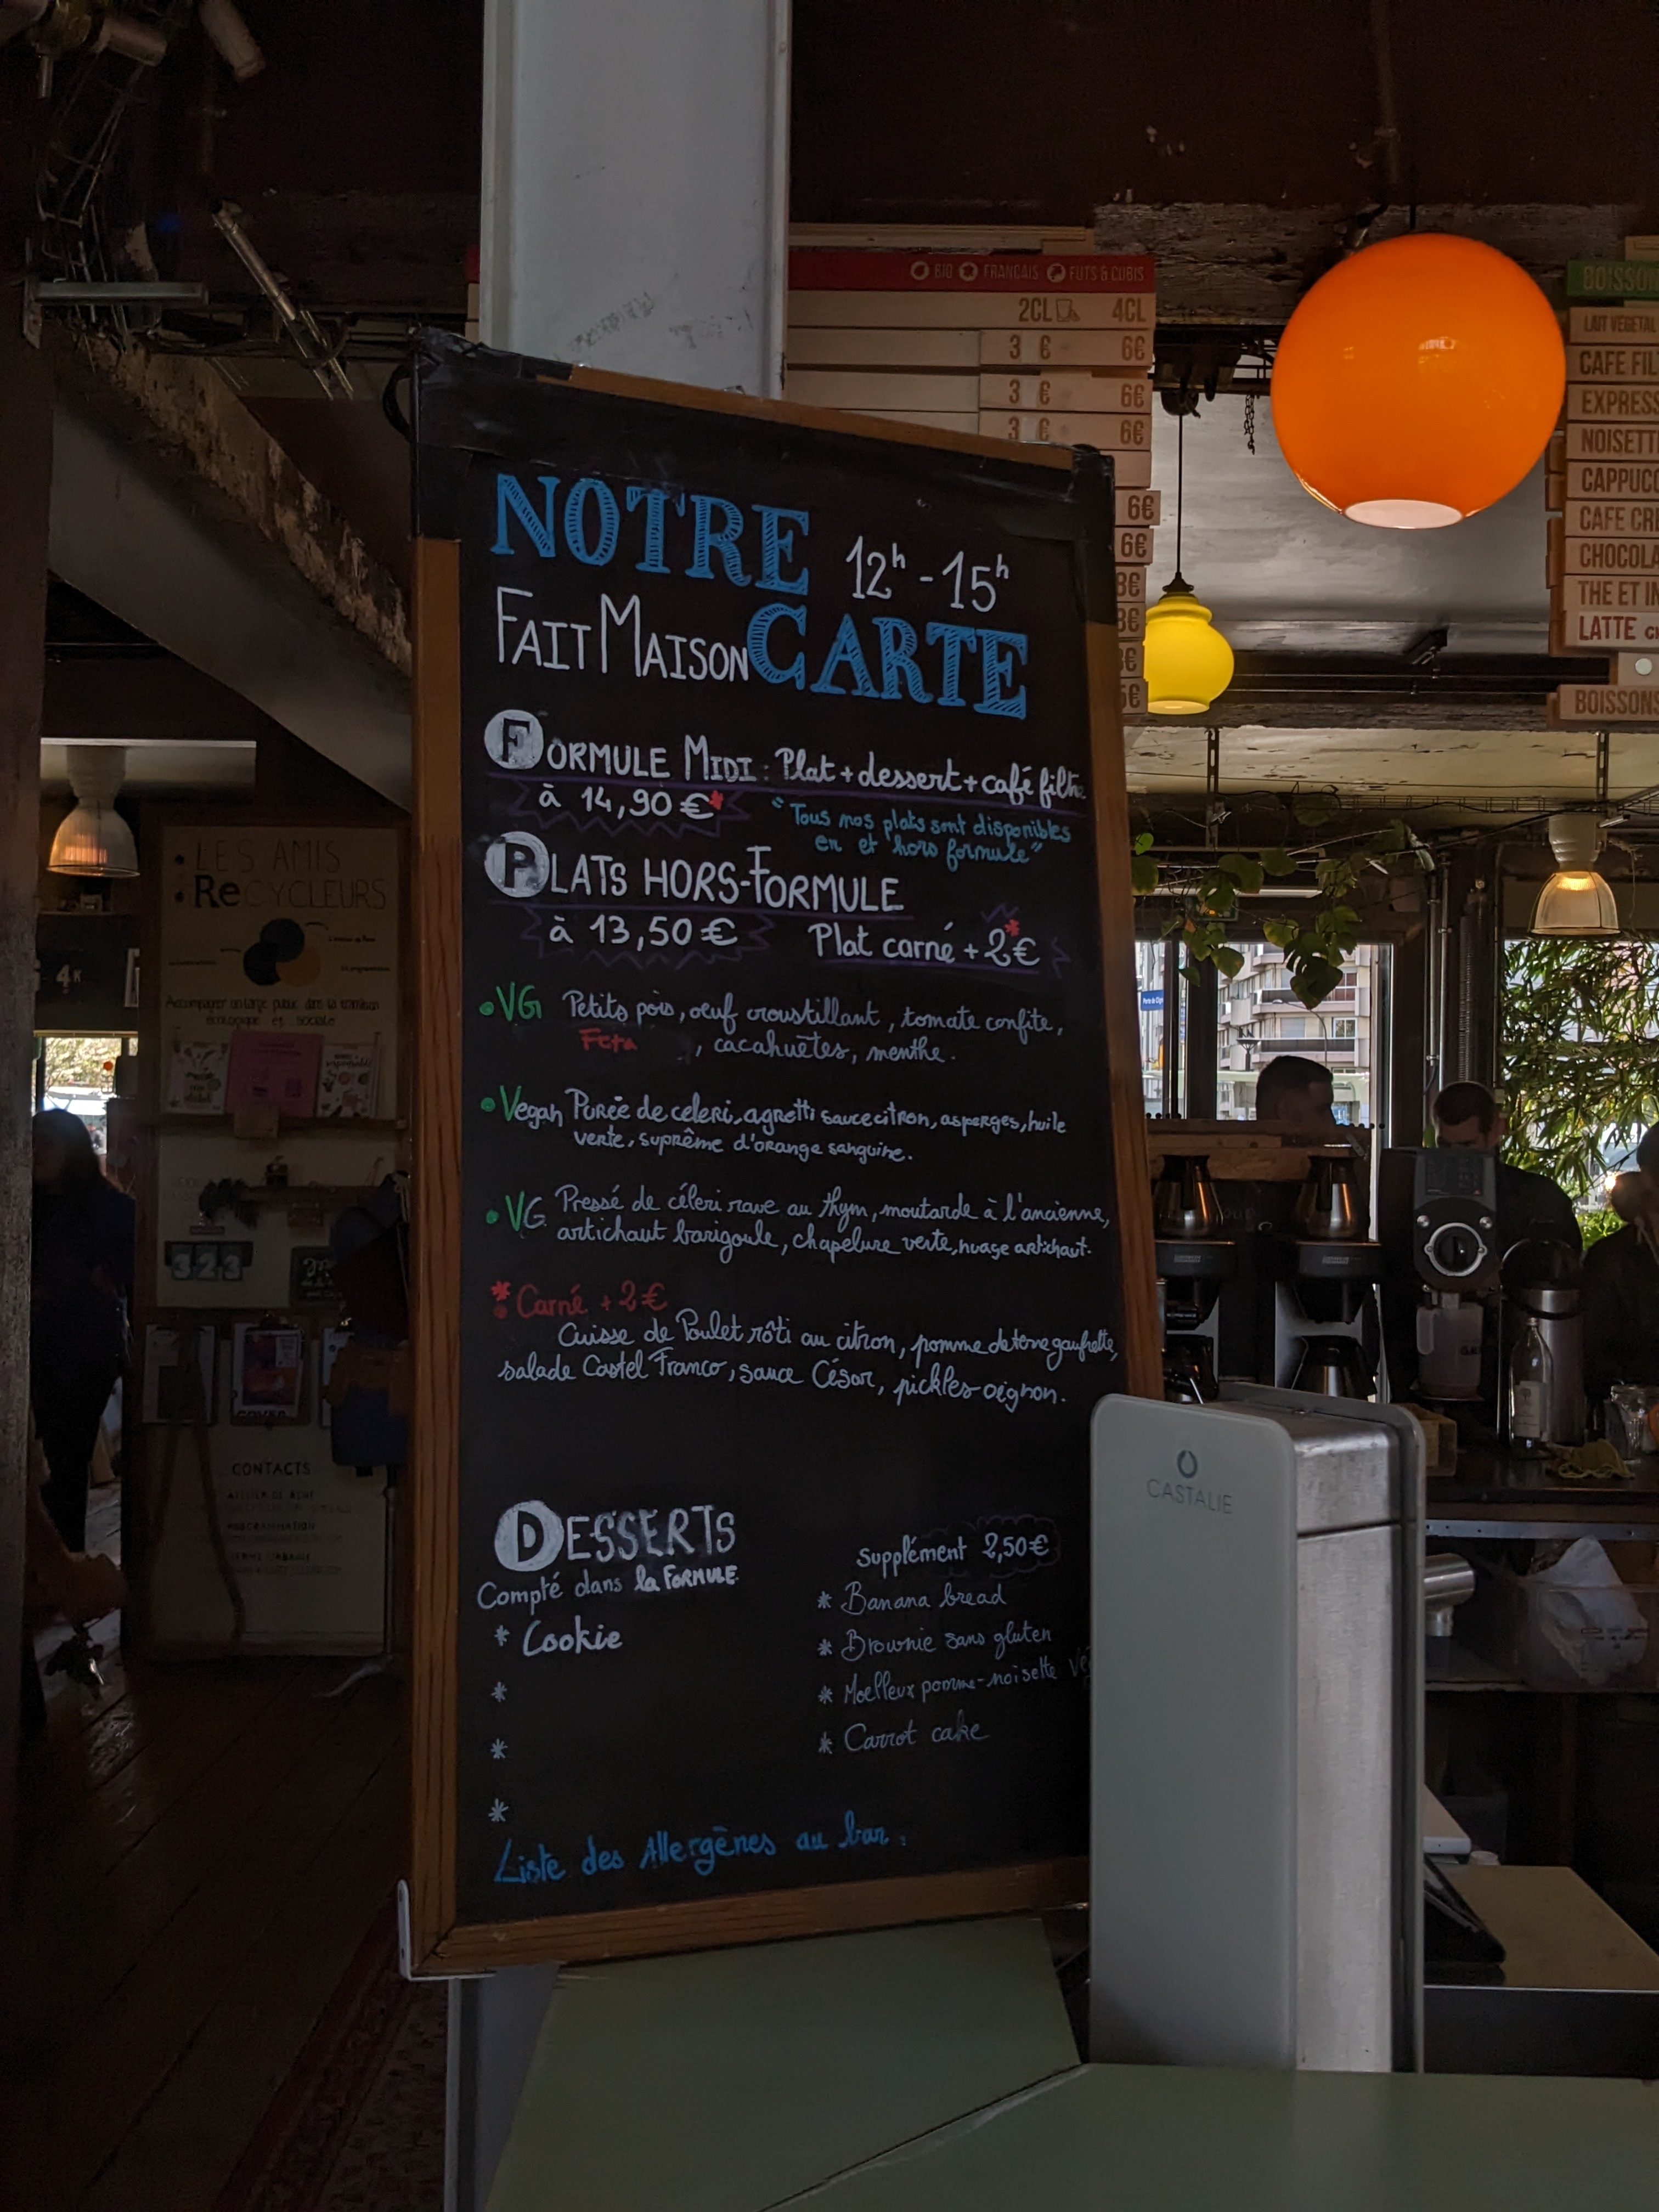 BIO FRANCAIS FUTS & CUBIS
2CL 4CL
3 € 6€
3 € 6€
3 € 6€
6€
6€
BOISSON
LAIT VEGETAL
CAFE FIL
EXPRESS
NOISETT
CAPPUCC
CAFE CRE
CHOCOLA
THE ET IN
LATTE
BOISSONS
NOTRE 12h - 15h
FAIT MAISON CARTE
FORMULE MIDI : Plat + dessert + café filtre
à 14,90 €*
"Tous nos plats sont disponibles
en et hors formule"
PLATS HORS-FORMULE
à 13,50 € Plat carné + 2€*
• VG Petits pois, œuf croustillant, tomate confite,
Feta, cacahuètes, menthe.
• Vegan Purée de celeri, agretti sauce citron, asperges, huile
verte, suprême d'orange sanguine.
• VG Pressé de céleri rave au thym, moutarde à l'ancienne,
artichaut barigoule, chapelure verte, nuage artichaut.
* Carné + 2 €
Cuisse de Poulet rôti au citron, pomme de terre gaufrette,
salade Castel Franco, sauce César, pickles oignon.
DESSERTS
Compté dans la FORMULE
* Cookie
*
*
*
Supplément 2,50€
* Banana bread
* Brownie sans gluten
* Moelleux pomme-noisette
* Carrot cake
Liste des Allergènes au bar.
LES AMIS
ReCYCLEURS
Accompagner un large public dans la transition
écologique et sociale
323
CONTACTS
CASTALIE